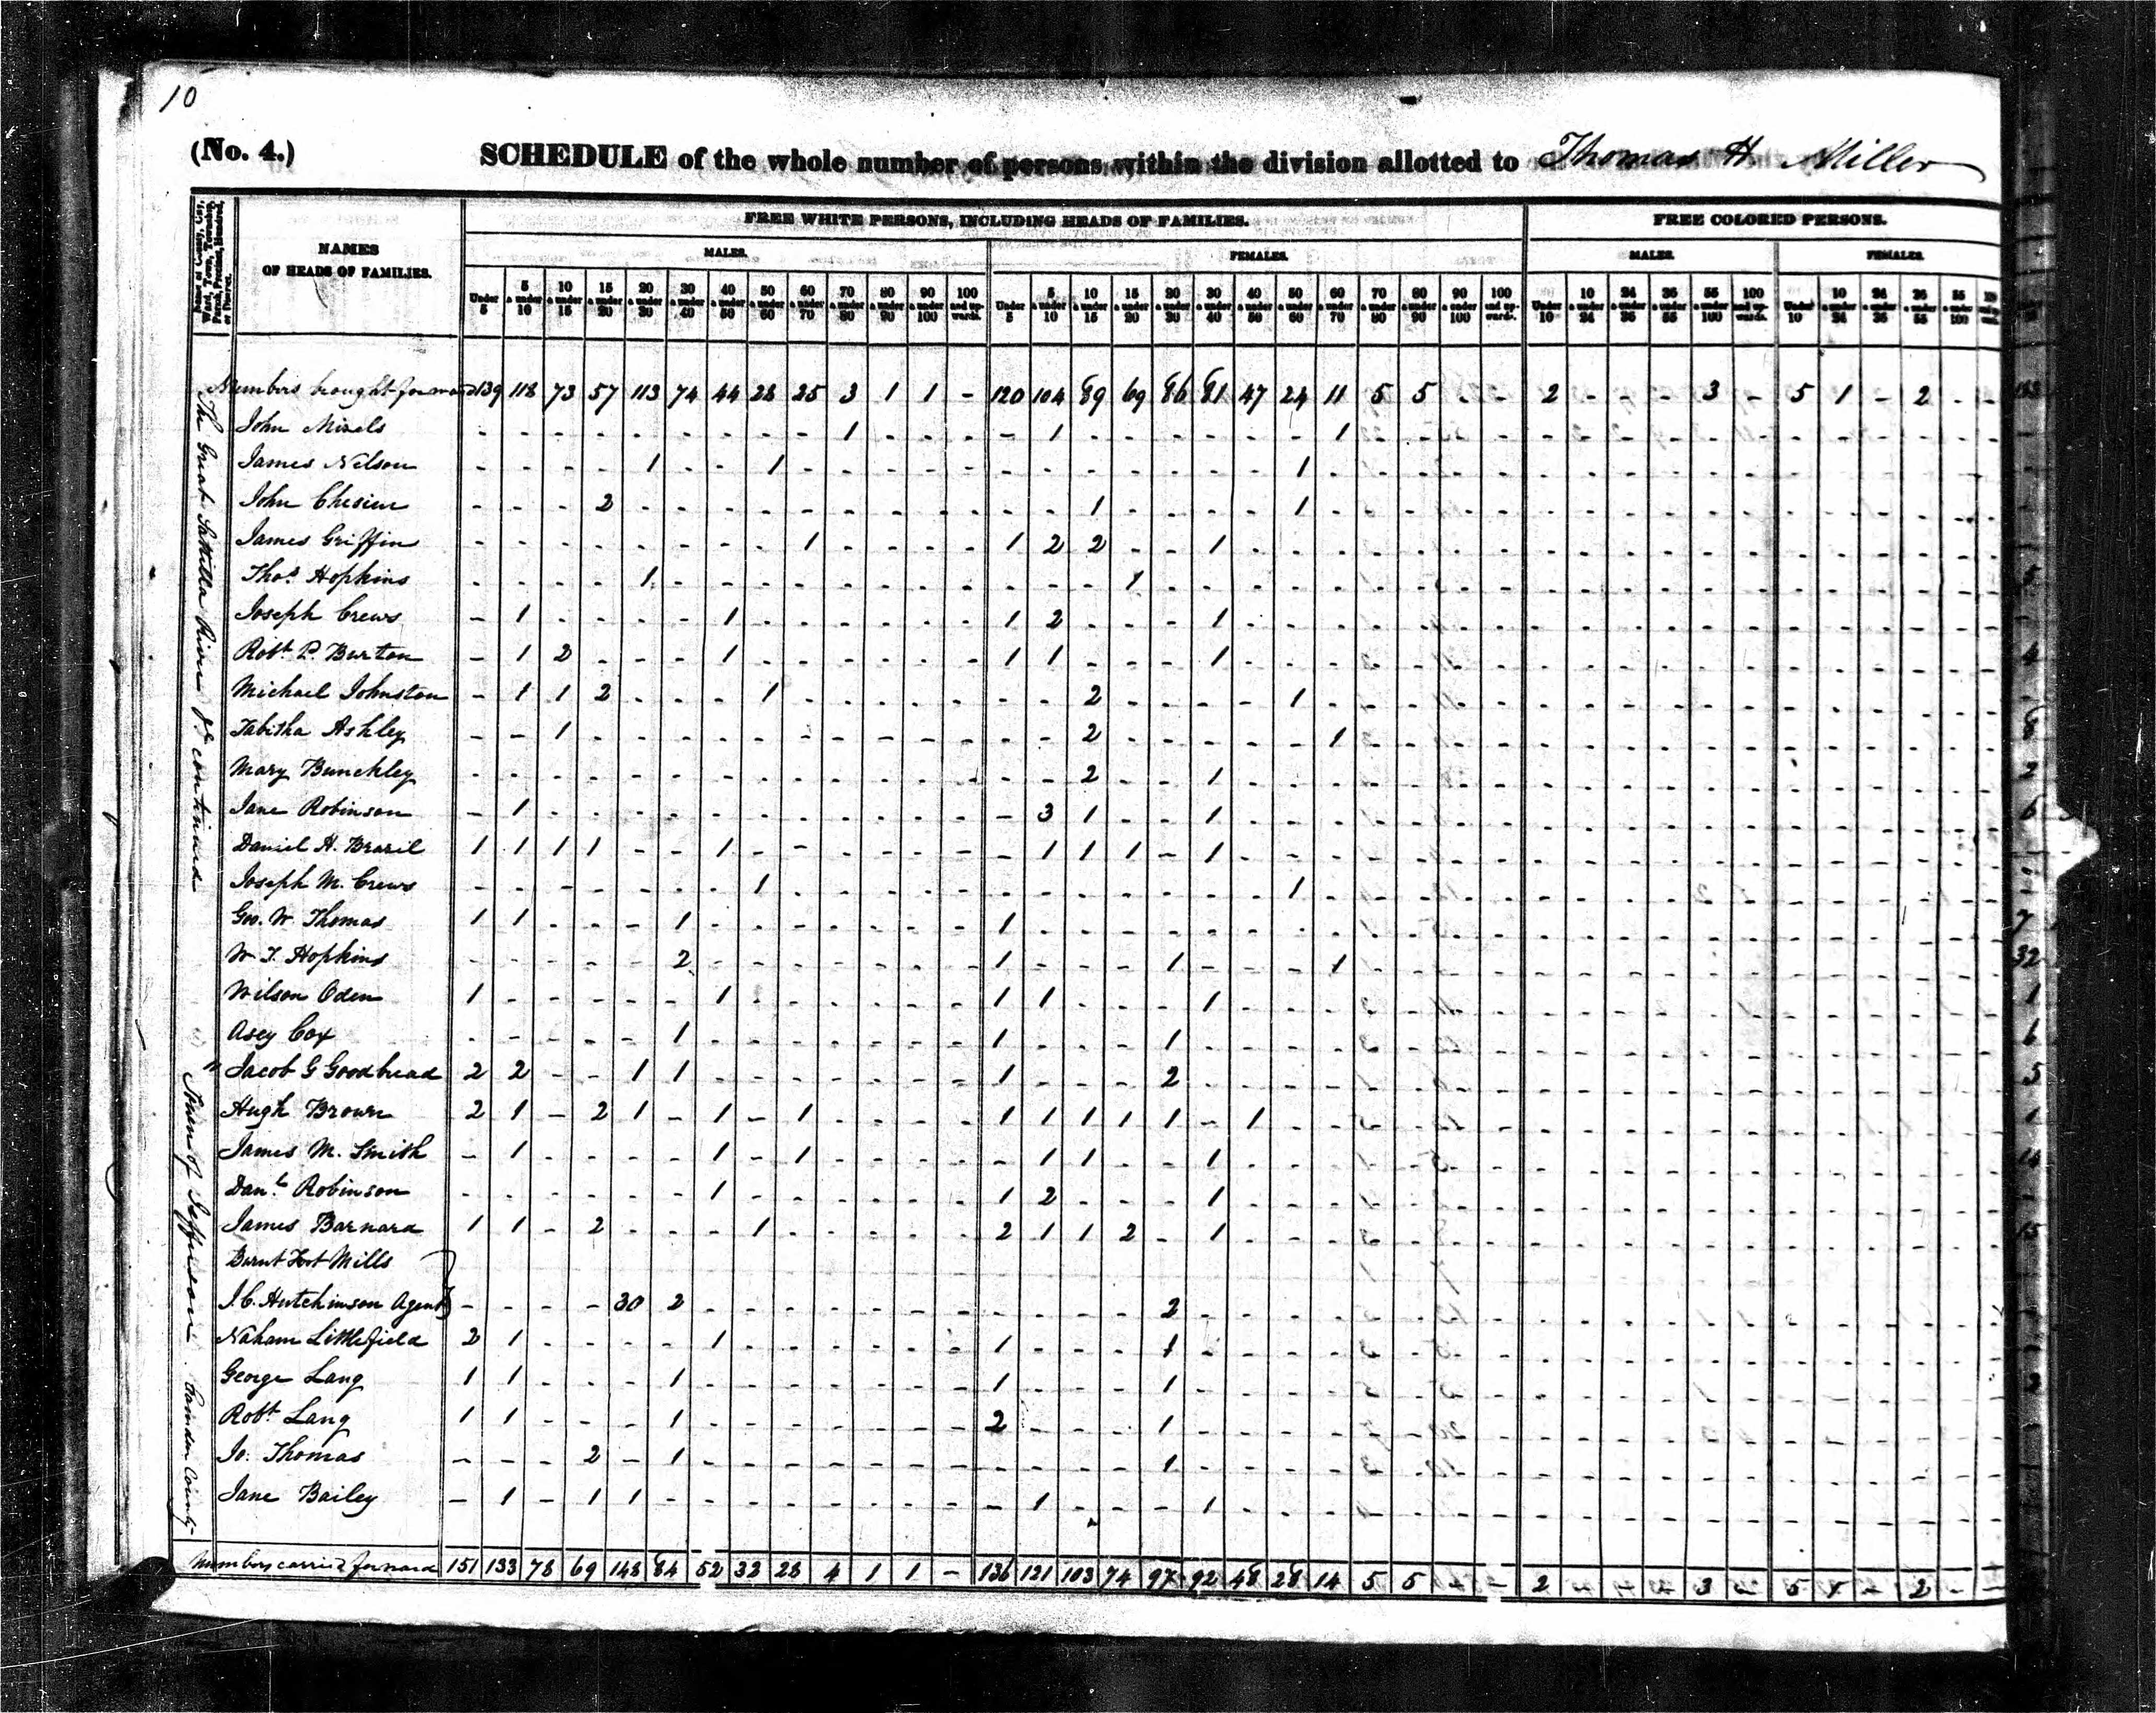 10
(No. 4.) SCHEDULE of the whole number of persons within the division allotted to Thomas H. Miller
Name of County, City, Ward, Town, Township, Parish, Precinct, Hundred, or District.
NAMES OF HEADS OF FAMILIES.
FREE WHITE PERSONS, INCLUDING HEADS OF FAMILIES.
FREE COLORED PERSONS.
MALES. FEMALES. MALES. FEMALES.
Under 5 | 5 & under 10 | 10 & under 15 | 15 & under 20 | 20 & under 30 | 30 & under 40 | 40 & under 50 | 50 & under 60 | 60 & under 70 | 70 & under 80 | 80 & under 90 | 90 & under 100 | 100 and upwards. | Under 5 | 5 & under 10 | 10 & under 15 | 15 & under 20 | 20 & under 30 | 30 & under 40 | 40 & under 50 | 50 & under 60 | 60 & under 70 | 70 & under 80 | 80 & under 90 | 90 & under 100 | 100 and upwards. | Under 10 | 10 & under 24 | 24 & under 36 | 36 & under 55 | 55 & under 100 | 100 and upwards. | Under 10 | 10 & under 24 | 24 & under 36 | 36 & under 55 | 55 & under 100
The Great Sattilla River continued
Numbers brought forward 139 118 73 57 113 74 44 28 25 3 1 1 - 120 104 89 69 86 81 47 24 11 5 5 - - 2 - - - 3 - 5 1 - 2 - -
John Mizels 1 1 1
James Nelson 1 1 1
John Chesier 2 1 1
James Griffin 1 1 2 2 1
Thos. Hopkins 1 1 5
Joseph Crews 1 1 1 2 1
Robt. P. Burton 1 2 1 1 1 1 4
Michael Johnston 1 1 2 1 2 1
Tabitha Ashley 1 2 1 8
Mary Bunckley 2 1 2
Jane Robinson 1 3 1 1 6
Daniel H. Brazil 1 1 1 1 1 1 1 1 1
Joseph M. Crews 1 1
Geo. W. Thomas 1 1 1 1 7
W. T. Hopkins 2 1 1 1 32
Wilson Oden 1 1 1 1 1 1
Asey Cox 1 1 1 6
Town of Jefferson Camden County
" Jacob G Goodbread 2 2 1 1 1 2 5
Hugh Brown 2 1 - 2 1 - 1 - 1 1 1 1 1 1 - 1 1
James M. Smith 1 1 1 1 1 1 14
Danl. Robinson 1 1 2 1
James Barnard 1 1 - 2 1 2 1 1 2 - 1 15
Burnt Fort Mills
J. C. Hutchinson Agent 30 2 2
Naham Littlefield 2 1 1 1 1
George Lang 1 1 1 1 1
Robt Lang 1 1 1 2 1
Jo: Thomas 2 - 1 1
Jane Bailey 1 - 1 1 1 1
Numbers carried forward 151 133 78 69 148 84 52 32 28 4 1 1 - 136 121 103 74 97 92 48 28 14 5 5 - - 2 - - - 3 - 5 1 - 2 - -